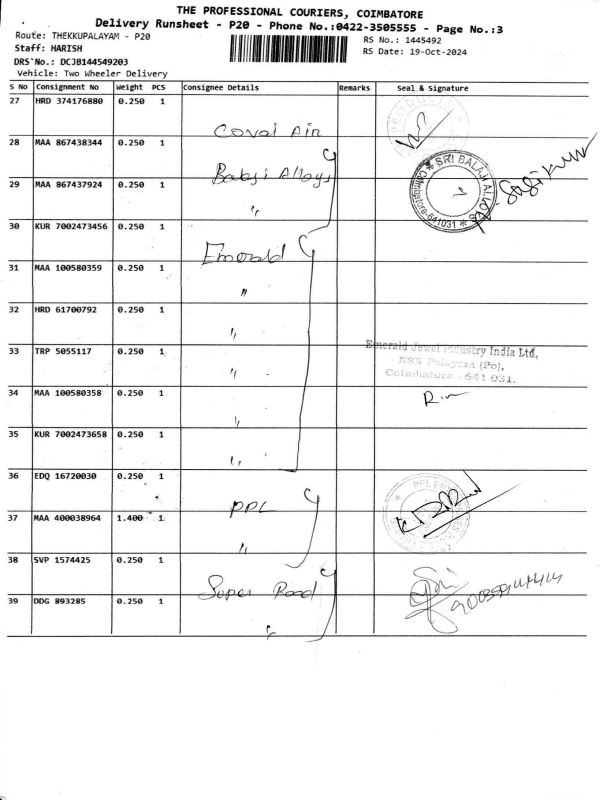 THE PROFESSIONAL COURIERS, COIMBATORE
Delivery Runsheet - P20 - Phone No.:0422-3505555 - Page No.:3
Route: THEKKUPALAYAM - P20
RS No.: 1445492
Staff: HARISH
RS Date: 19-Oct-2024
DRS No.: DCJB144549203
Vehicle: Two Wheeler Delivery
S No Consignment No Weight PCS Consignee Details Remarks Seal & Signature
27 HRD 374176880 0.250 1
Coval Air
28 MAA 867438344 0.250 1
Balaji Alloys
SRI BALAJI ALLOYS
Coimbatore-641031
29 MAA 867437924 0.250 1
"
30 KUR 7002473456 0.250 1
Emerald
31 MAA 100580359 0.250 1
"
32 HRD 61700792 0.250 1
"
33 TRP 5055117 0.250 1
"
Emerald Jewel Industry India Ltd,
NSN Palayam (Po),
Coimbatore - 641 031.
34 MAA 100580358 0.250 1
"
35 KUR 7002473658 0.250 1
"
36 EDQ 16720030 0.250 1
PPL
37 MAA 400038964 1.400 1
"
38 SVP 1574425 0.250 1
Super Road
39 DDG 893285 0.250 1
"